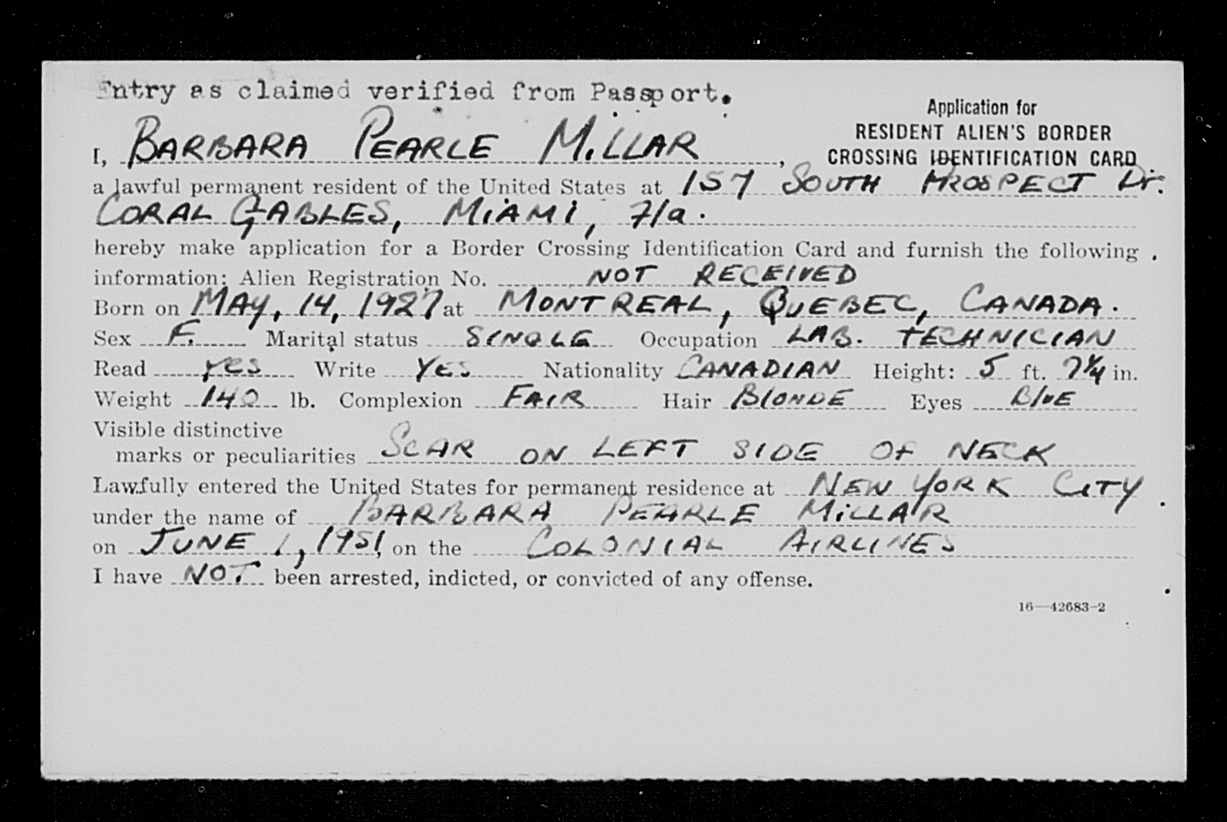 Entry as claimed verified from Passport.
Application for
RESIDENT ALIEN'S BORDER
CROSSING IDENTIFICATION CARD
I, BARBARA PEARLE MILLAR,
a lawful permanent resident of the United States at 157 SOUTH PROSPECT Dr.
CORAL GABLES, MIAMI, Fla.
hereby make application for a Border Crossing Identification Card and furnish the following
information: Alien Registration No. NOT RECEIVED
Born on MAY, 14, 1927 at MONTREAL, QUEBEC, CANADA.
Sex F. Marital status SINGLE Occupation LAB. TECHNICIAN
Read YES Write YES Nationality CANADIAN Height: 5 ft. 7 1/4 in.
Weight 140 lb. Complexion FAIR Hair BLONDE Eyes BLUE
Visible distinctive
marks or peculiarities SCAR ON LEFT SIDE OF NECK
Lawfully entered the United States for permanent residence at NEW YORK CITY
under the name of BARBARA PEARLE MILLAR
on JUNE 1, 1951 on the COLONIAL AIRLINES
I have NOT been arrested, indicted, or convicted of any offense.
16—42683-2